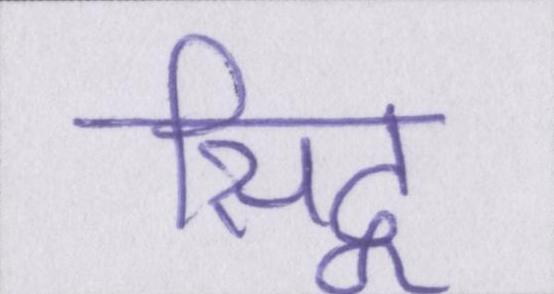 सिद्ध